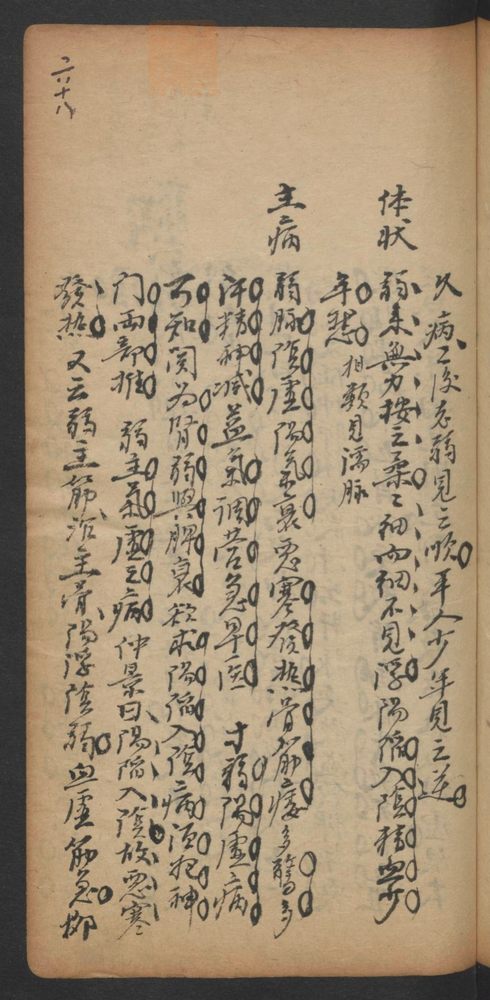 久病之後老弱見之順平人少年見之逆
体狀
弱来無力按之柔々細而細不見浮陽陷入陰精血少
年愁 相類見濡脉
主病
弱脉陰虛陽氣衰悪寒發热骨筋痿多驚多
汗精神减益氣調营急早医 寸弱陽虛病
可知関为胃弱與脾衰欲求陽陷入陰病須把神
门両部推 弱主氣虛之病仲景曰陽陷入陰故悪寒
發热 又云弱主筋沉主骨陽浮陰弱血虛筋急柳
二六十八